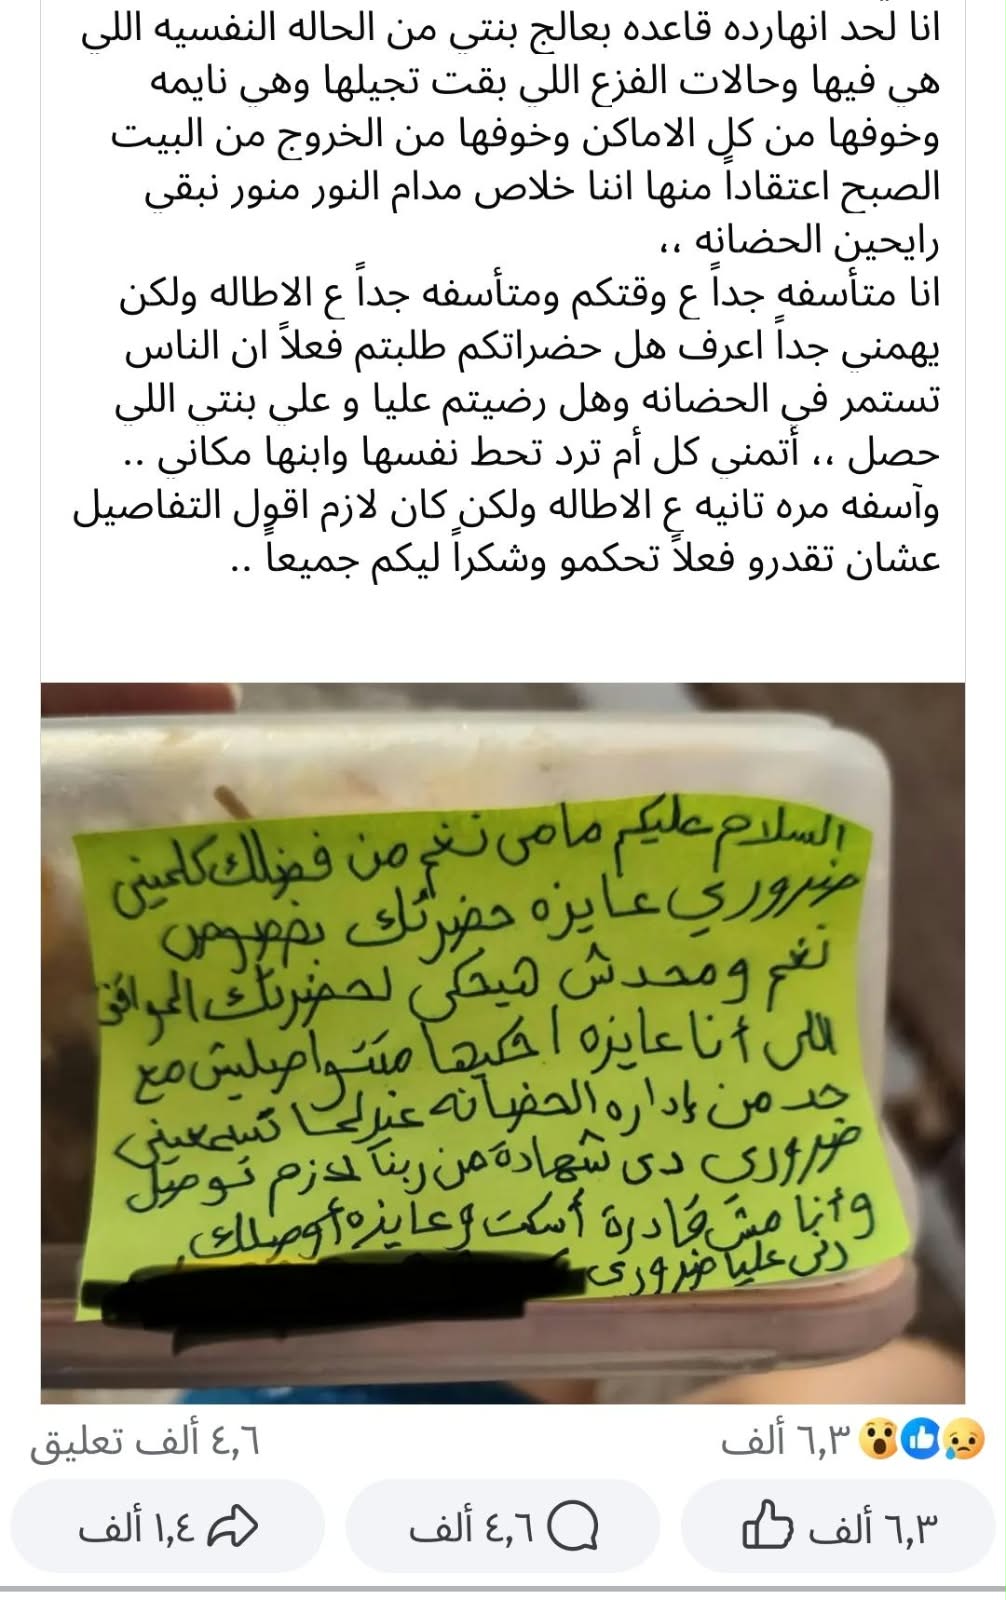 انا لحد انهارده قاعده بعالج بنتي من الحاله النفسيه اللي
هي فيها وحالات الفزع اللي بقت تجيلها وهي نايمه
وخوفها من كل الاماكن وخوفها من الخروج من البيت
الصبح اعتقاداً منها اننا خلاص مدام النور منور نبقي
رايحين الحضانه ،،
انا متأسفه جداً ع وقتكم ومتأسفه جداً ع الاطاله ولكن
يهمني جداً اعرف هل حضراتكم طلبتم فعلاً ان الناس
تستمر في الحضانه وهل رضيتم عليا و علي بنتي اللي
حصل ،، أتمني كل أم ترد تحط نفسها وابنها مكاني ..
وآسفه مره تانيه ع الاطاله ولكن كان لازم اقول التفاصيل
عشان تقدرو فعلاً تحكمو وشكراً ليكم جميعاً ..
السلام عليكم مامى نغم من فضلك كلمينى
ضروري عايزه حضرتك بخصوص
نغم ومحدش هيحكى لحضرتك المواقف
اللى أنا عايزه احكيها متتواصليش مع
حد من إداره الحضانه غير لما تسمعينى
ضرورى دى شهادة من ربنا لازم توصل
وأنا مش قادرة أسكت وعايزه أوصلك
رنى عليا ضرورى
٦,٣ ألف
٤,٦ ألف تعليق
٦,٣ ألف
٤,٦ ألف
١,٤ ألف